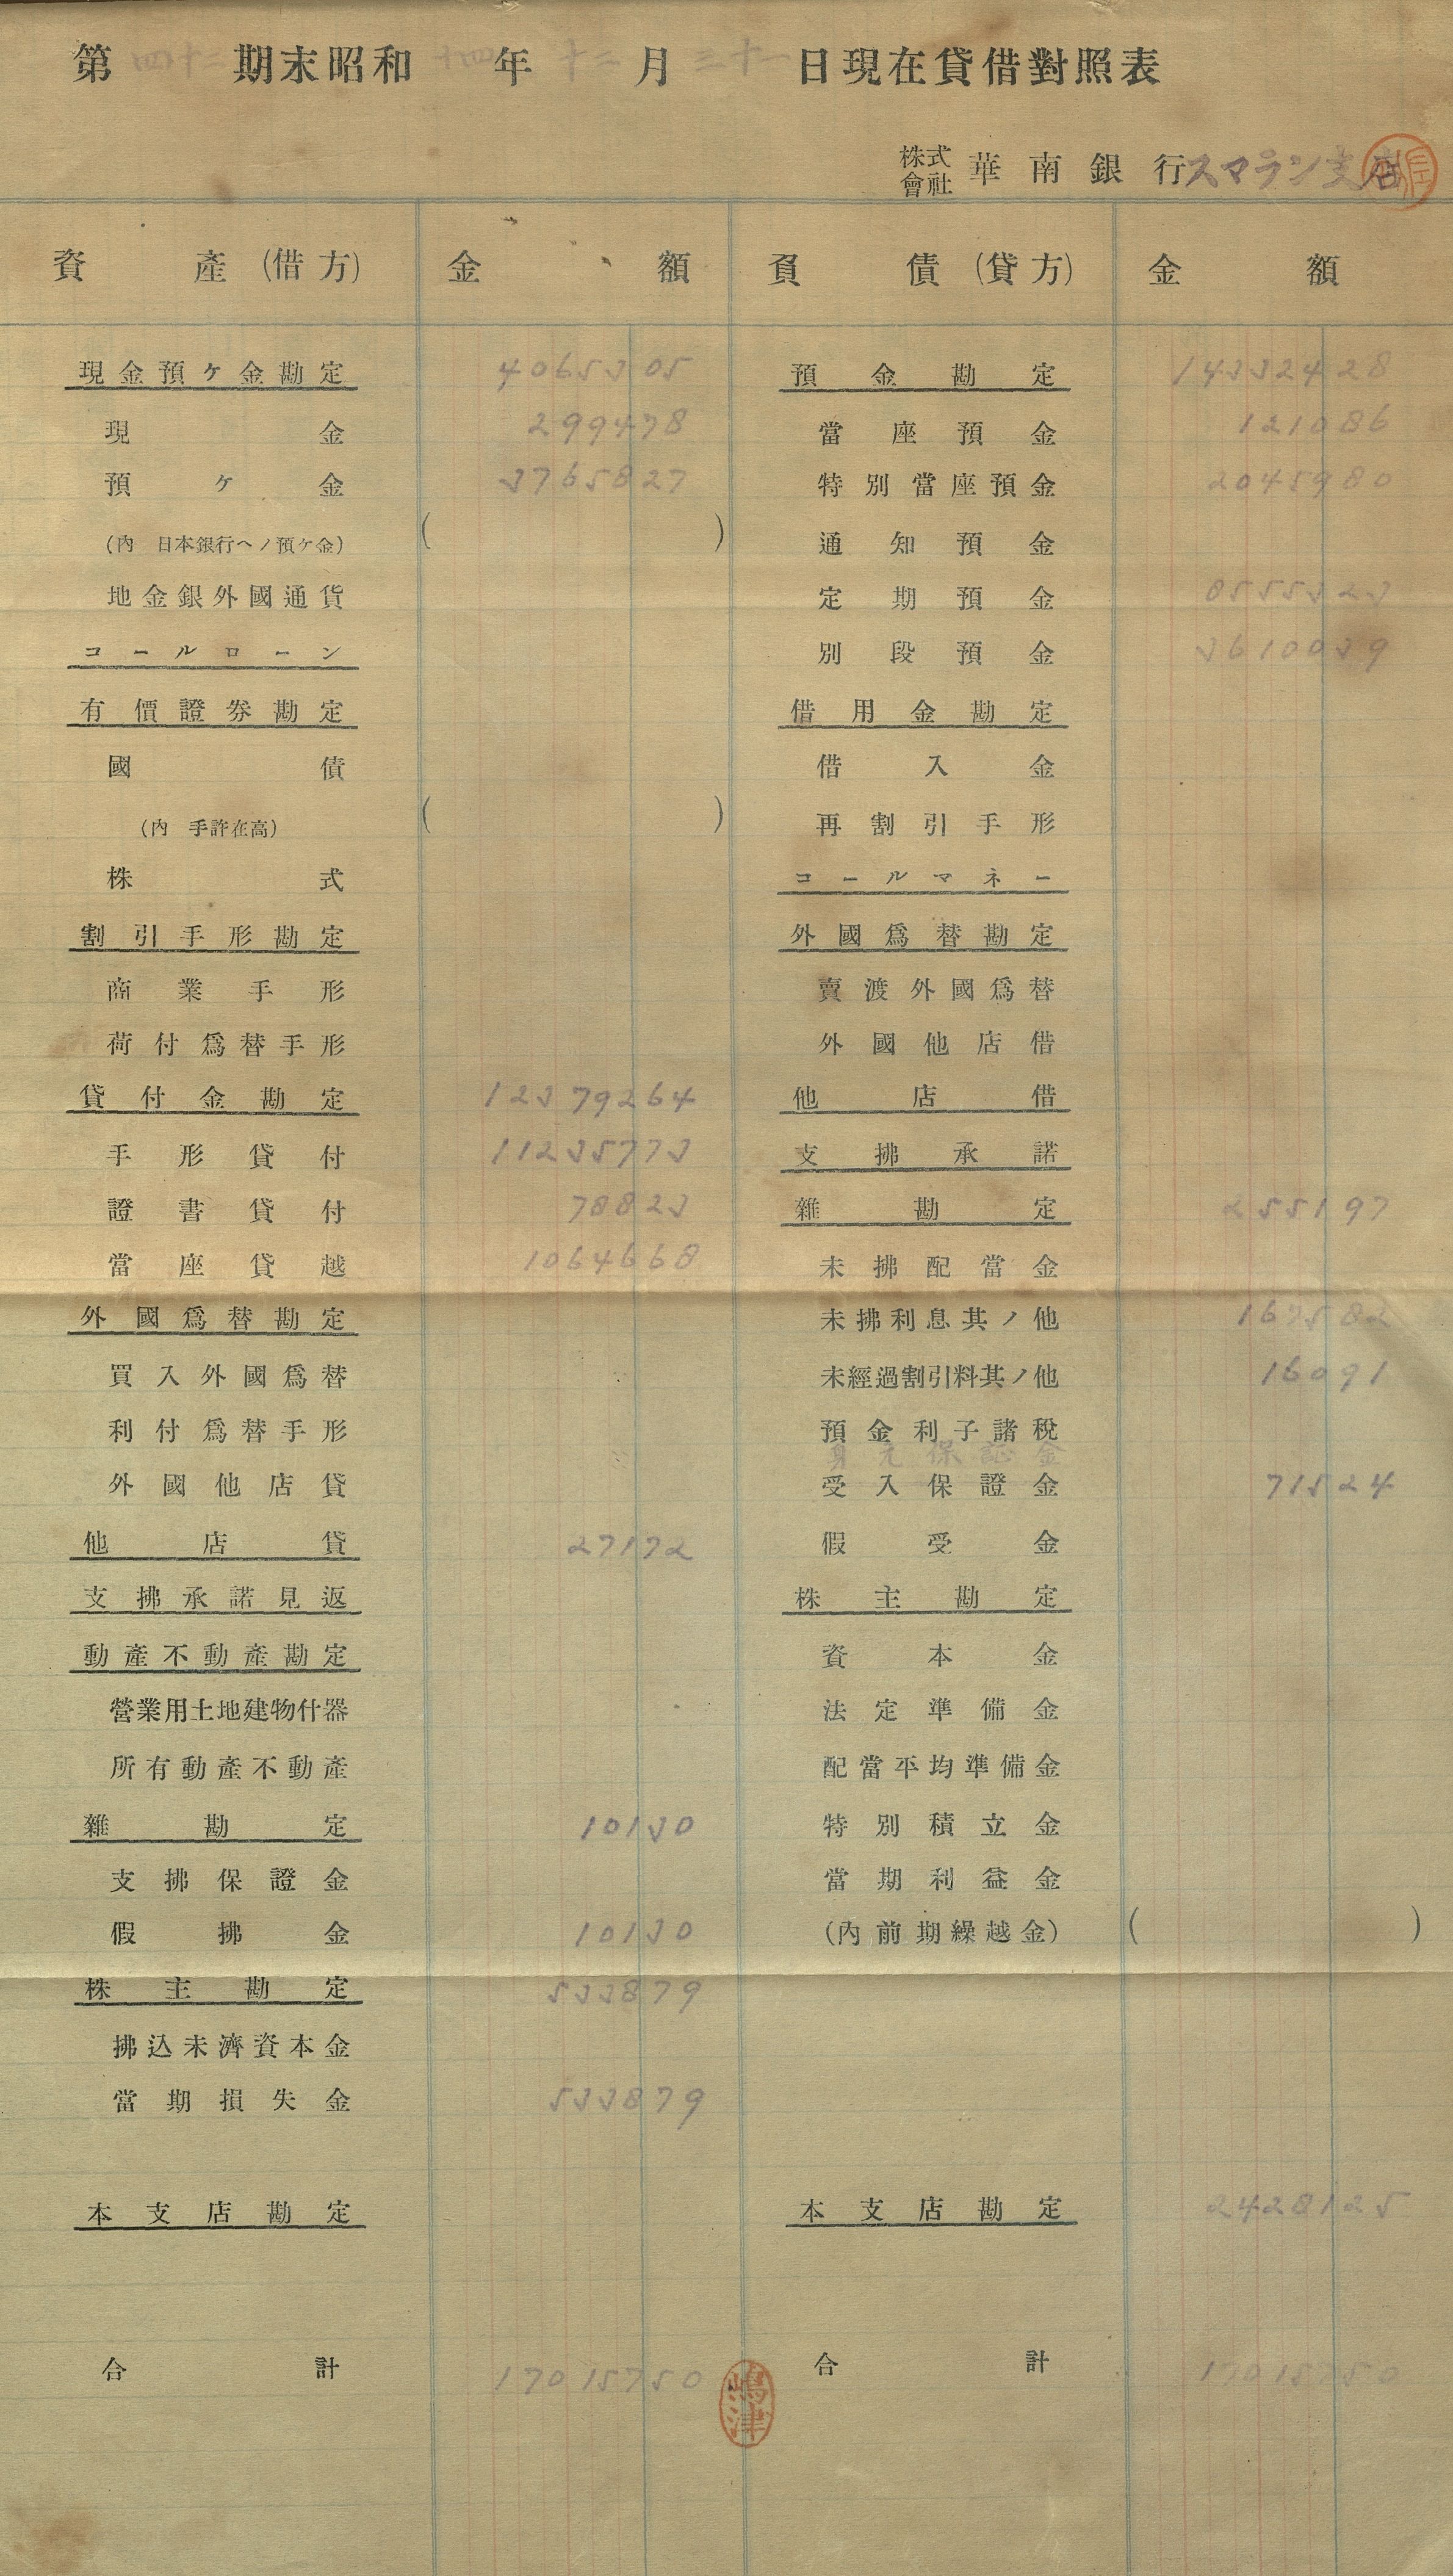 第四十二期末昭和十四年十二月三十一日現在貸借對照表
株式會社 華南銀行スマラン支店
資產(借方) 金額 負債(貸方) 金額
現金預ケ金勘定 4065305 預金勘定 14332428
現金 299478 當座預金 121086
預ケ金 3765827 特別當座預金 2045980
(內 日本銀行ヘノ預ケ金) ( ) 通知預金
地金銀外國通貨 定期預金 8555323
コールローン 別段預金 3610039
有價證券勘定 借用金勘定
國債 借入金
(內 手許在高) ( ) 再割引手形
株式 コールマネー
割引手形勘定 外國爲替勘定
商業手形 賣渡外國爲替
荷付爲替手形 外國他店借
貸付金勘定 12379264 他店借
手形貸付 11235773 支拂承諾
證書貸付 78823 雜勘定 255197
當座貸越 1064668 未拂配當金
外國爲替勘定 未拂利息其ノ他 167582
買入外國爲替 未經過割引料其ノ他 16091
利付爲替手形 預金利子諸稅
身元保証金
外國他店貸 受入保證金 71524
他店貸 27172 假受金
支拂承諾見返 株主勘定
動產不動產勘定 資本金
營業用土地建物什器 法定準備金
所有動產不動產 配當平均準備金
雜勘定 10130 特別積立金
支拂保證金 當期利益金
假拂金 10130 (內前期繰越金) ( )
株主勘定 533879
拂込未濟資本金
當期損失金 533879
本支店勘定 本支店勘定 2428125
合計 17015750 合計 17015750
嶋津